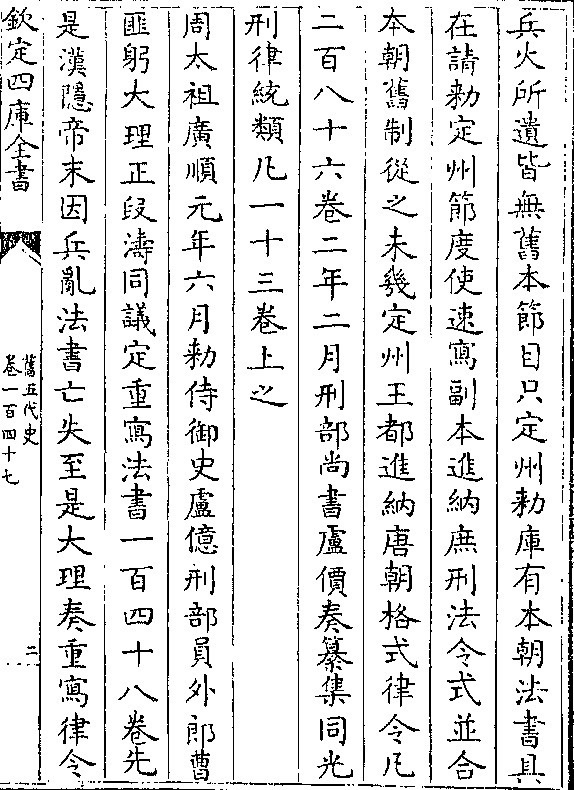 兵火所遺皆無舊本節目只定州勅庫有本朝法書具
在請勅定州節度使速寫副本進納庶刑法令式並合
本朝舊制從之未幾定州王都進納唐朝格式律令凡
二百八十六卷二年二月刑部尚書盧價奏纂集同光
刑律統類凡一十三卷上之
周太祖廣順元年六月勅侍御史盧億刑部員外郎曹
匪躬大理正段濤同議定重寫法書一百四十八卷先
是漢隱帝末因兵亂法書亡失至是大理奏重寫律令
欽定四庫全書
舊五代史
卷一百四十七
二